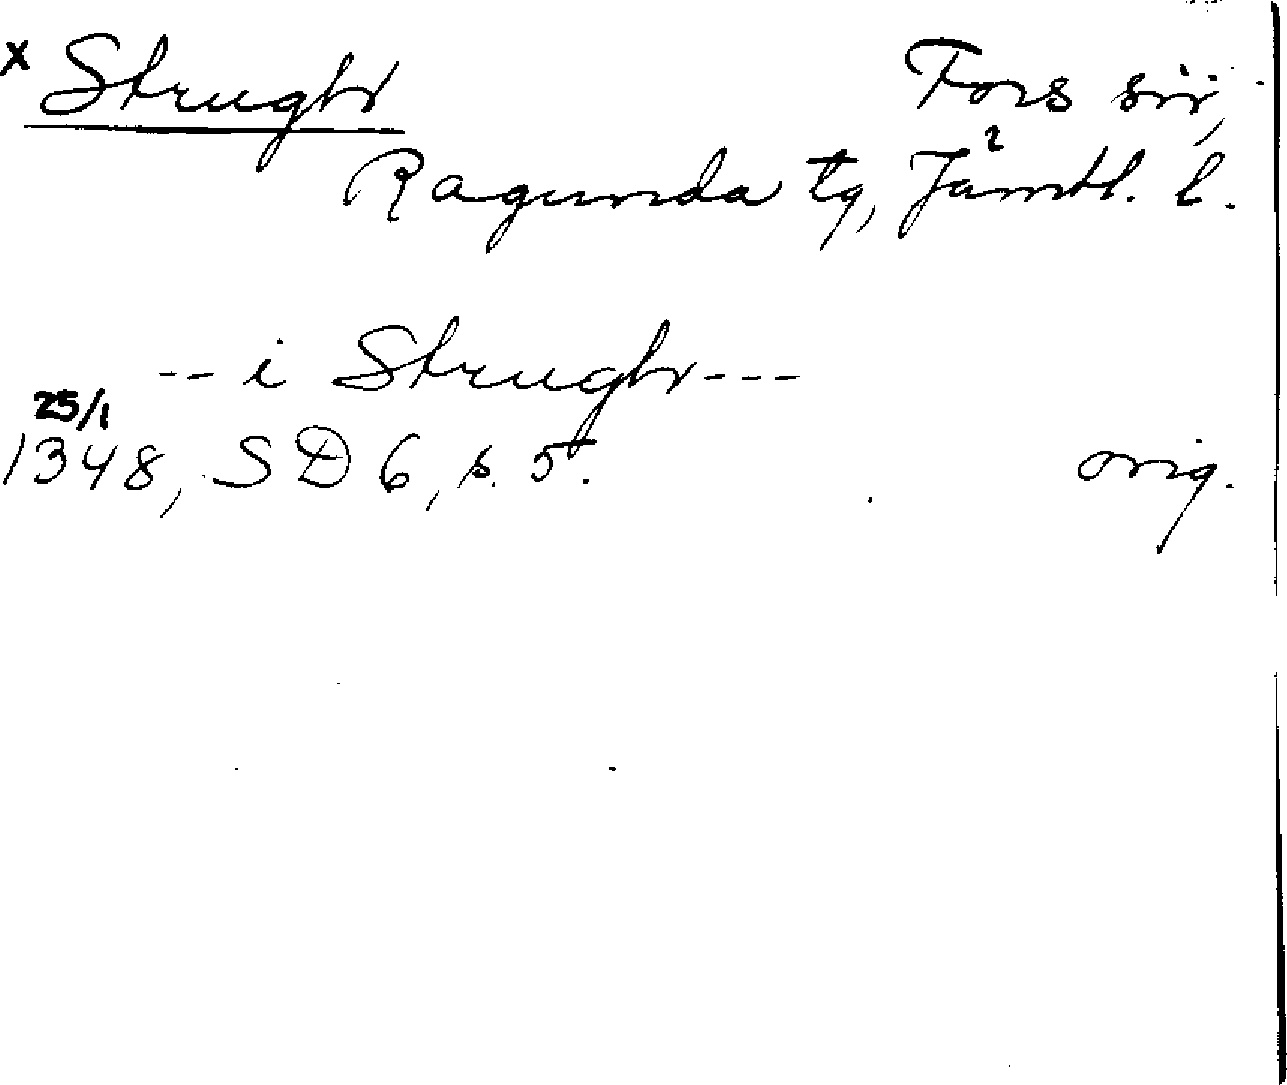 x Strughr Fors sn,
Ragunda tg, Jämtl. l.
-- i Strughr ---
25/1
1348, SD 6, s. 5. orig.